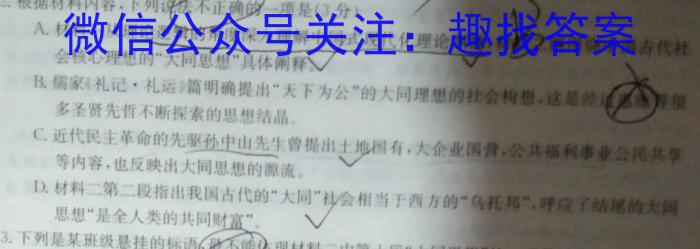 2.根据材料内容,下列说法不正确的一项是(3分)
微信公众号关注:趣找答案
A. 理论 古代社
会核心理想的“大同思想”具体阐释。
B. 儒家《礼记·礼运》篇明确提出“天下为公”的大同理想的社会构想,这是经过 等很
多圣贤先哲不断探索的思想结晶。
C. 近代民主革命的先驱孙中山先生曾提出土地国有,大企业国营,公共福利事业公民共享
等内容,也反映出大同思想的源流。
D. 材料二第二段指出我国古代的“大同”社会相当于西方的“乌托邦”,呼应了结尾的大同
思想“是全人类的共同财富”。
3.下列是某班级悬挂的标语,最不能体现材料二中第十段“大同